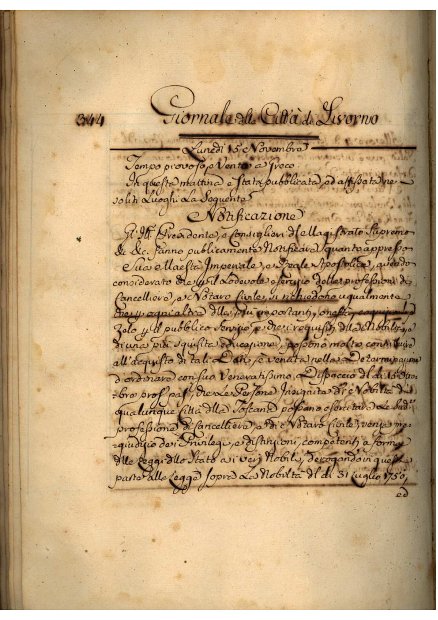 344 Giornale della Città di Livorno
Lunedì 15 Novembre
Tempo piovoso, e Vento a Greco
In questa mattina è stata pubblicata, ed affissata ne
soliti Luoghi la seguente
Notificazione
Presidente, e Consiglieri della Magistrato Supremo
di &c. fanno pubblicamente Notificare quanto appresso
Sua Maestà Imperiale, e Reale Apostolica, avendo
considerato che il Lodevole esercizio delle professioni di
Cancelliere, e Notaro Civile, si richiedono ugualmente
importanti, onestà,
Zelo pubblico servizio, e che i requisiti della Nobiltà, e
di una più squisita educazione, possono molto contribuire
all'acquisto di tali Doti, è venuta nella Determinazione
d'ordinare con suo Veneratissimo Dispaccio de 15
pross. pass. che le Persone insignite di Nobiltà di
qualunque Città della Toscana possano esercitare le sud.
professione di Cancelliere, e di Notaro Civile, senza pre
giudizio dei Privilegi, e distinzioni, competenti a forma
delle Leggi dello Stato a i veri Nobili, derogando in questa
parte alla Legge sopra la Nobiltà del dì 31 Luglio 1750,
ed